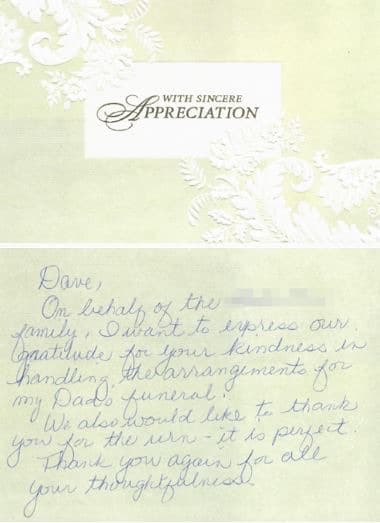 WITH SINCERE
APPRECIATION
Dave,
On behalf of the
family, I want to express our
gratitude for your kindness in
handling the arrangements for
my Dad's funeral.
We also would like to thank
you for the urn - it is perfect.
Thank you again for all
your thoughtfulness.